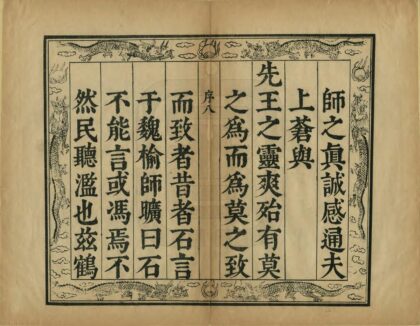 師之眞誠感通夫
上蒼與
先王之靈爽殆有莫
之爲而爲莫之致
序八
而致者昔者石言
于魏榆師曠曰石
不能言或馮焉不
然民聽濫也兹鶴